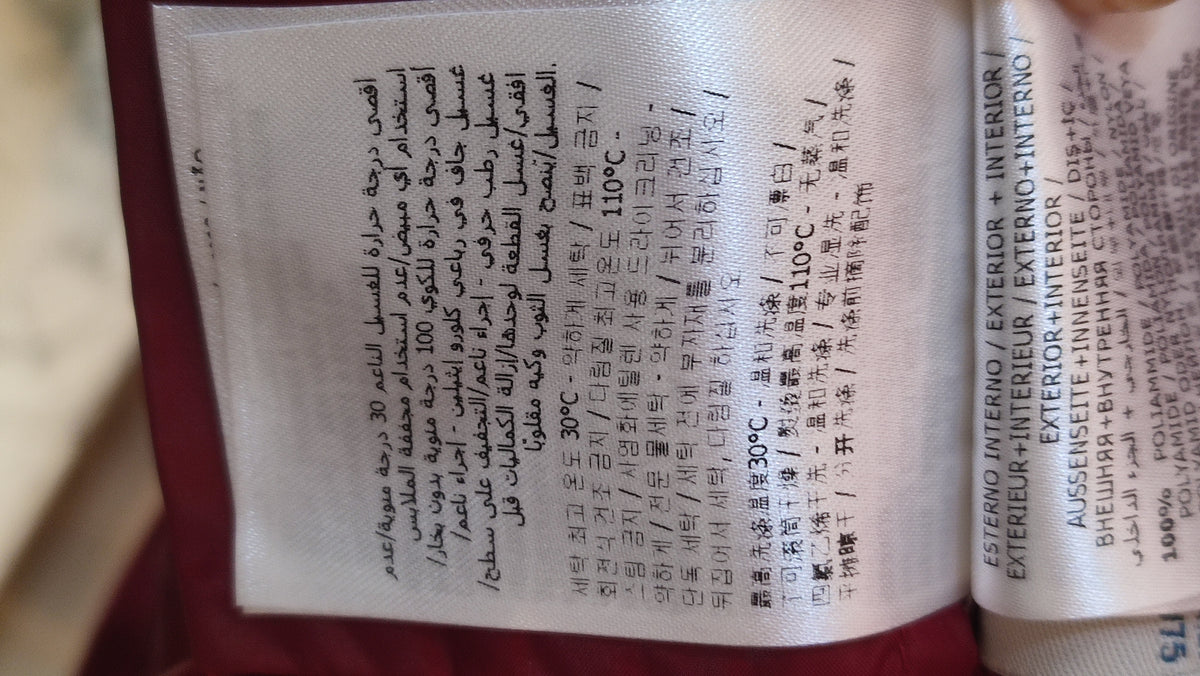 أقصى درجة حرارة للغسيل الناعم 30 درجة مئوية/عدم
استخدام أي مبيض/عدم استخدام مجففة الملابس
أقصى درجة حرارة للكوي 100 درجة مئوية بدون بخار/
غسيل جاف في رباعي كلورو إيثيلين - إجراء ناعم/
غسيل رطب حرفي - إجراء ناعم/التجفيف على سطح
أفقي/غسل القطعة لوحدها/إزالة الكماليات قبل
الغسيل/ينصح بغسل الثوب وكيه مقلوبًا.
세탁 최고 온도 30°C - 약하게 세탁 / 표백 금지 /
회전식 건조 금지 / 다림질 최고 온도 110°C -
스팀 금지 / 사염화에틸렌 사용 드라이 크리닝 -
약하게 / 전문 물세탁 - 약하게 / 뉘어서 건조 /
단독 세탁 / 세탁 전에 부자재를 분리하십시오 /
뒤집어서 세탁, 다림질 하십시오
最高洗涤温度30°C - 温和洗涤 / 不可漂白 /
不可滚筒干燥 / 熨烫最高温度110°C - 无蒸气 /
四氯乙烯干洗 - 温和洗涤 / 专业湿洗 - 温和洗涤 /
平摊晾干 / 分开洗涤 / 洗涤前摘除配饰
ESTERNO INTERNO / EXTERIOR + INTERIOR /
EXTERIEUR+INTERIEUR / EXTERNO+INTERNO /
EXTERIOR+INTERIOR /
AUSSENSEITE+INNENSEITE /
ВНЕШНЯЯ+ВНУТРЕННЯЯ СТОРОНЫ /
الجزء الخارجي + الجزء الداخلي
100% POLIAMMIDE /
POLYAMIDE /
75